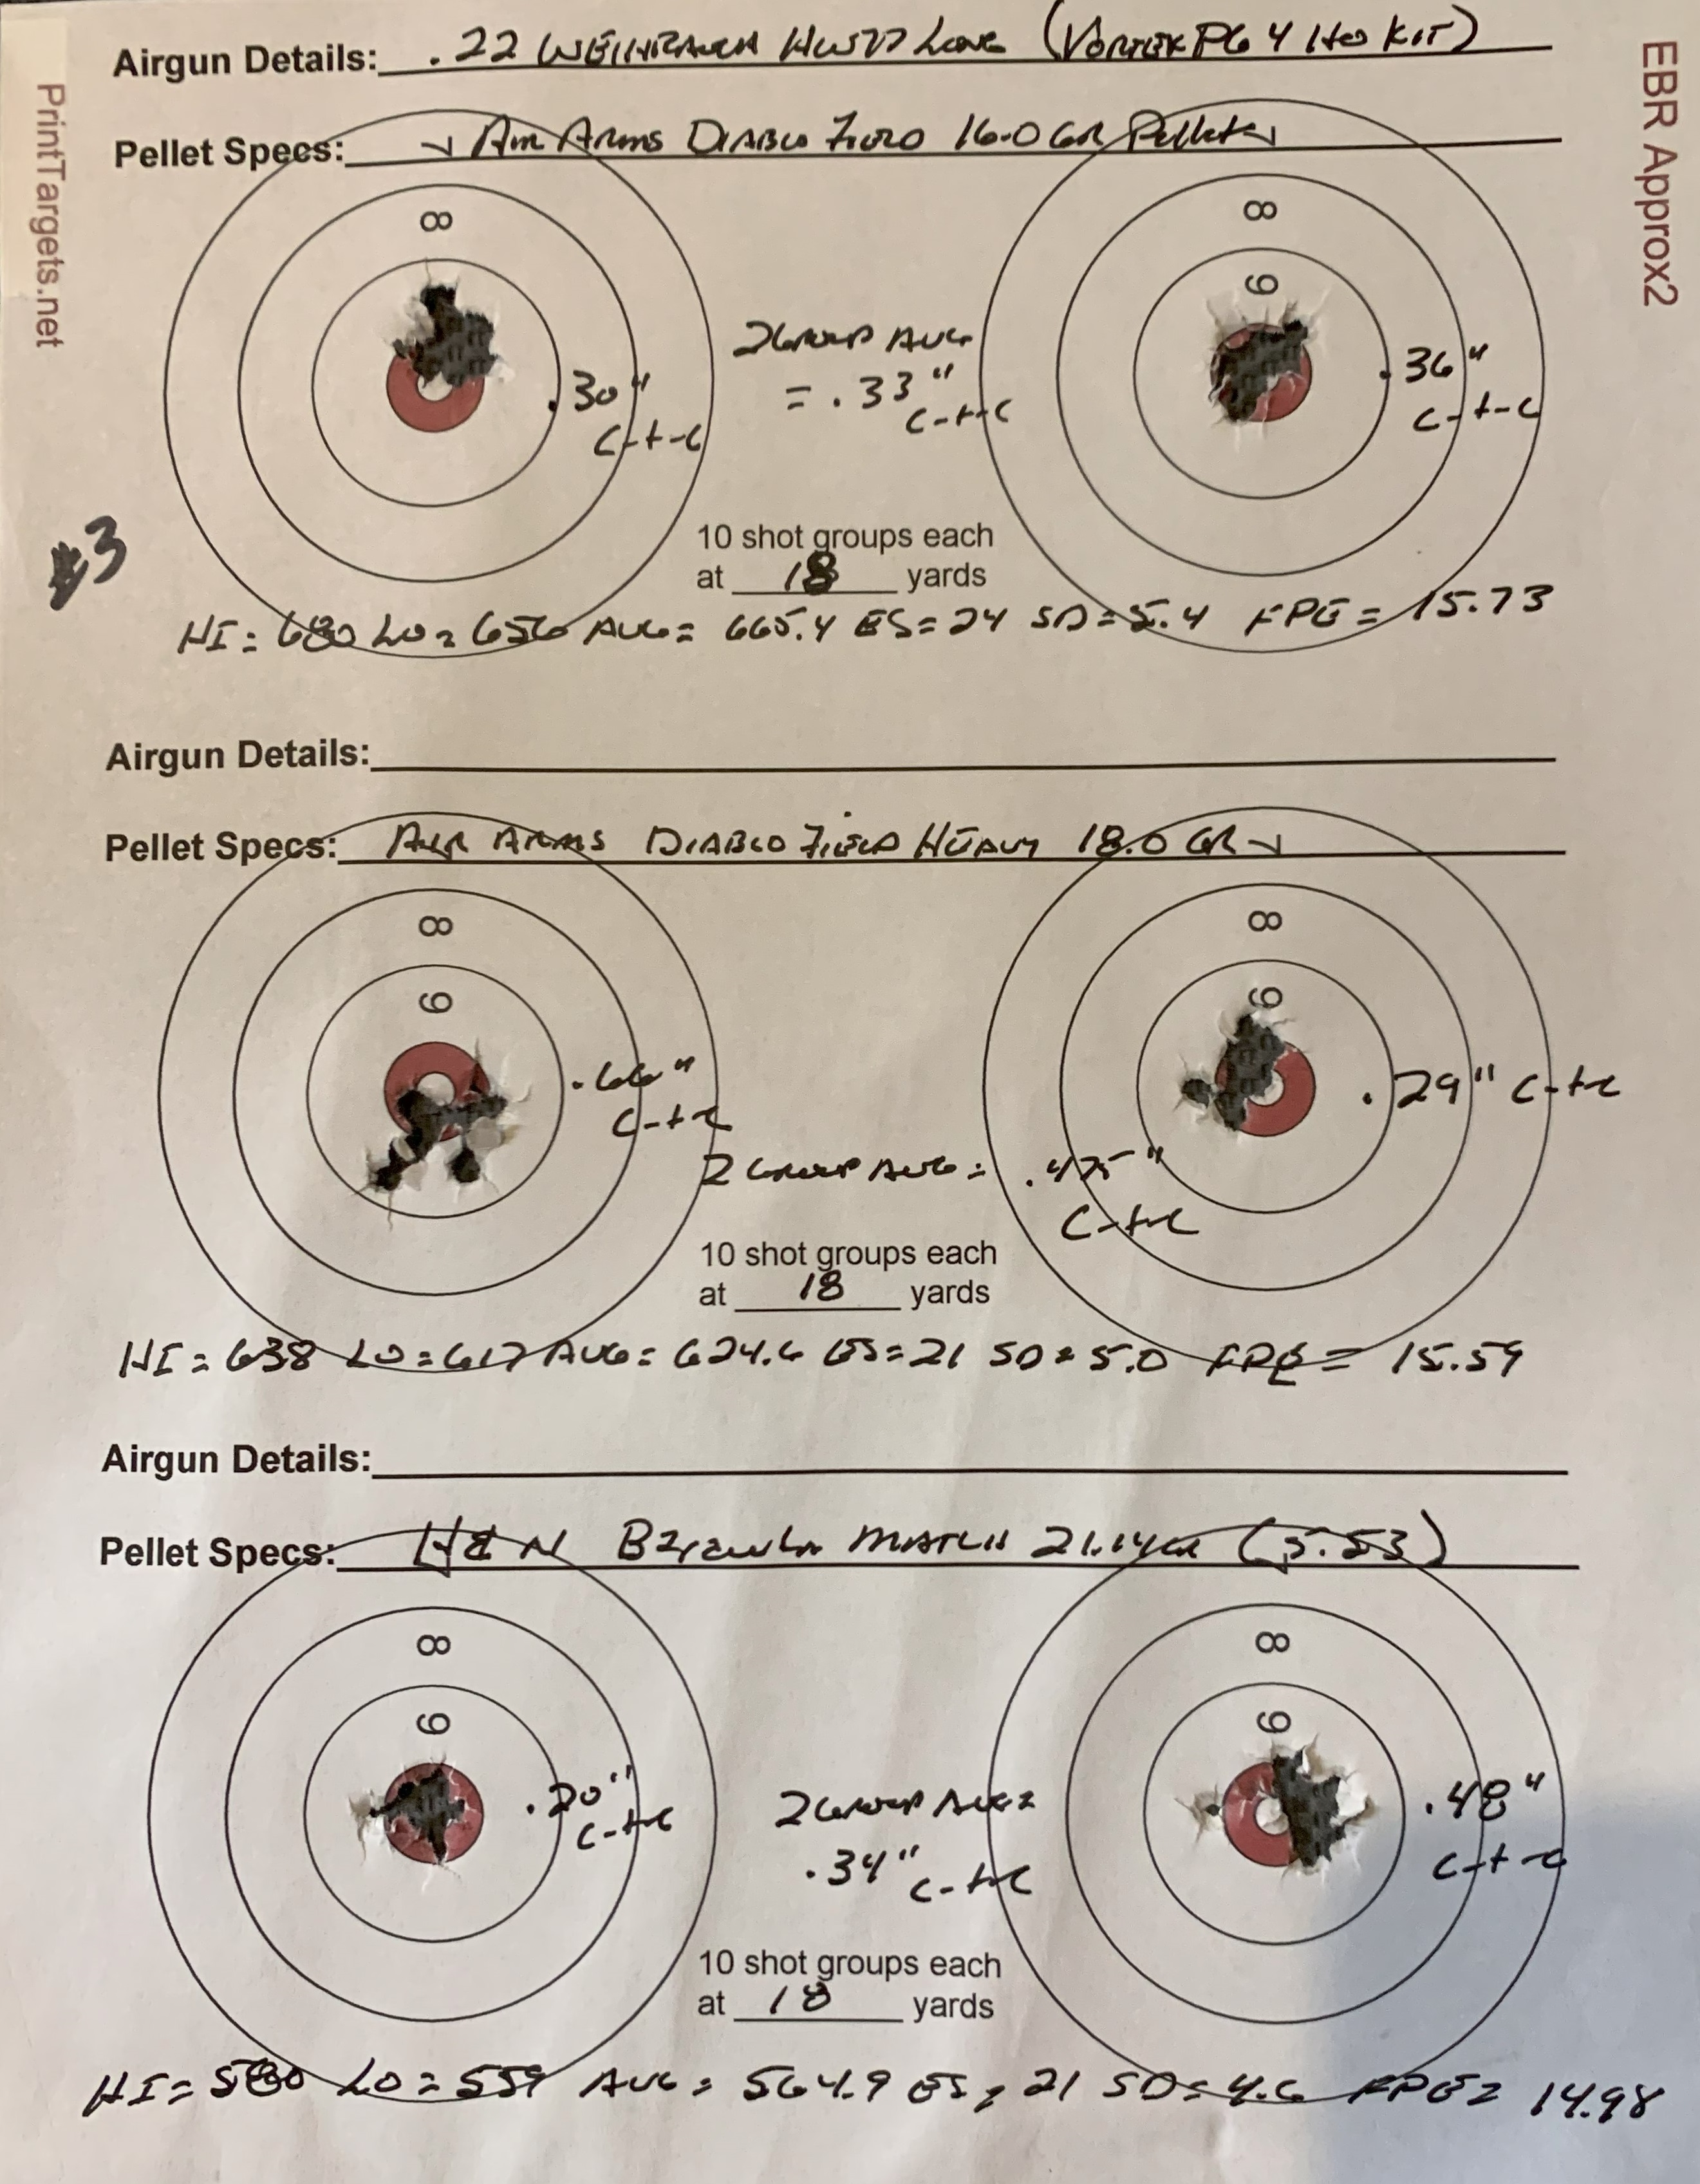 EBR Approx2
PrintTargets.net
Airgun Details: .22 WEIHRAUCH HW97 LONG (VORTEK PG4 HO KIT)
Pellet Specs: AIR ARMS DIABLO FIELD 16.0 GR Pellets
8
8
9
2 GROUP AVG
= .33" C-t-C
.30" C-t-C
.36" C-t-C
#3
10 shot groups each
at 18 yards
HI = 680 LO = 656 AVG = 665.4 ES = 24 SD = 5.4 FPE = 15.73
Airgun Details:
Pellet Specs: AIR ARMS DIABLO FIELD HEAVY 18.0 GR
8
8
9
9
.66" C-t-C
.29" C-t-C
2 GROUP AVG = .475" C-t-C
10 shot groups each
at 18 yards
HI = 638 LO = 617 AVG = 624.6 ES = 21 SD = 5.0 FPE = 15.59
Airgun Details:
Pellet Specs: H&N MATCH 21.14 GR (5.53)
8
8
9
9
.20" C-t-C
2 GROUP AVG =
.34" C-t-C
.48" C-t-C
10 shot groups each
at 18 yards
HI = 580 LO = 559 AVG = 564.9 ES = 21 SD = 4.6 FPE = 14.98